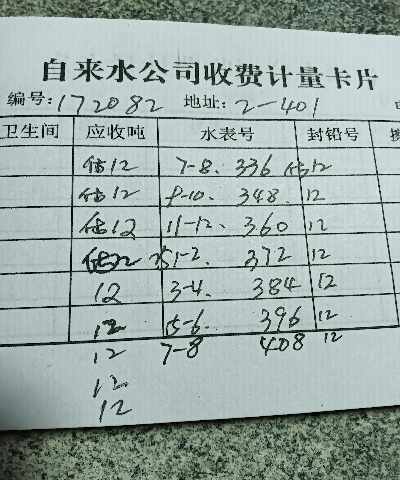 自来水公司收费计量卡片
编号:172082 地址:2-401
卫生间 应收吨 水表号 封铅号
估12 7-8. 336 估12
估12 9-10. 348. 12
估12 11-12. 360 12
估12 25 1-2. 372 12
12 3-4. 384 12
12 5-6. 396 12
12 7-8 408 12
12
12